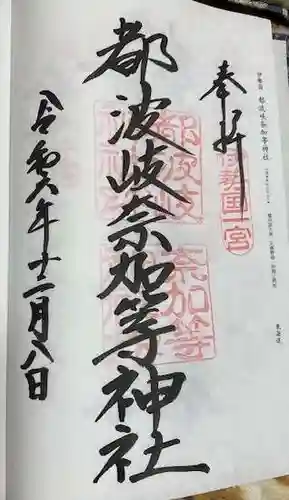 伊勢国 都波岐奈加等神社
奉拝
伊勢国一宮
都波岐奈加等神社
都波岐
奈加等
令和六年十一月八日